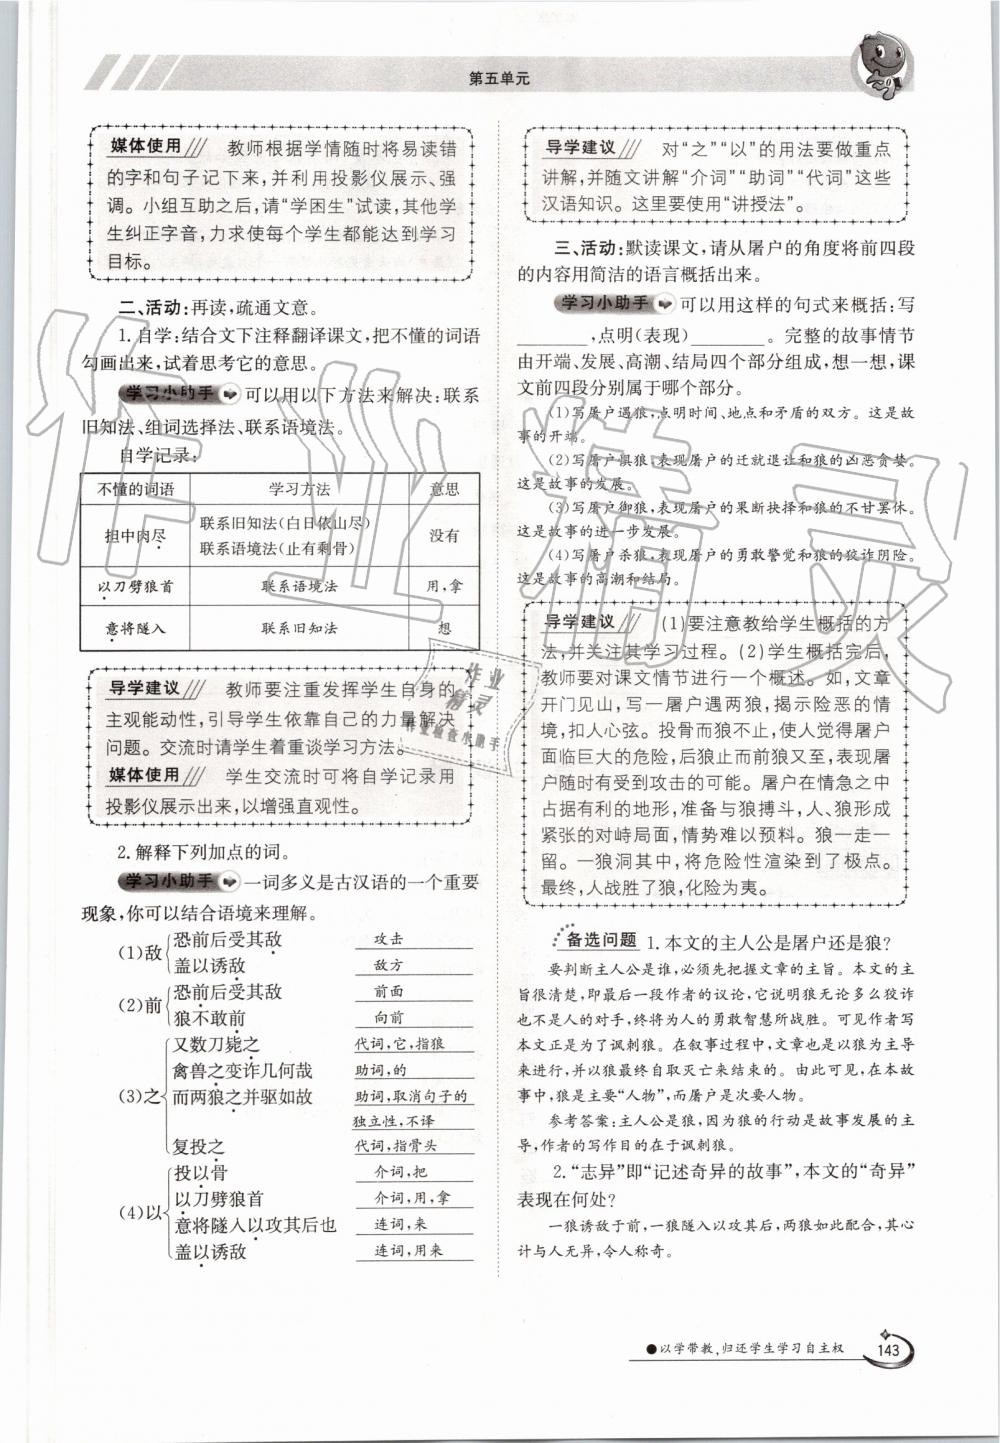 第五单元
媒体使用 教师根据学情随时将易读错
的字和句子记下来,并利用投影仪展示、强
调。小组互助之后,请“学困生”试读,其他学
生纠正字音,力求使每个学生都能达到学习
目标。
二、活动:再读,疏通文意。
1. 自学:结合文下注释翻译课文,把不懂的词语
勾画出来,试着思考它的意思。
学习小助手 可以用以下方法来解决:联系
旧知法、组词选择法、联系语境法。
自学记录:
不懂的词语 学习方法 意思
担中肉尽 联系旧知法(白日依山尽) 没有
联系语境法(止有剩骨)
以刀劈狼首 联系语境法 用,拿
意将隧入 联系旧知法 想
导学建议 教师要注重发挥学生自身的
主观能动性,引导学生依靠自己的力量解决
问题。交流时请学生着重谈学习方法。
媒体使用 学生交流时可将自学记录用
投影仪展示出来,以增强直观性。
2. 解释下列加点的词。
学习小助手 一词多义是古汉语的一个重要
现象,你可以结合语境来理解。
(1)敌
恐前后受其敌 攻击
盖以诱敌 敌方
(2)前
恐前后受其敌 前面
狼不敢前 向前
(3)之
又数刀毙之 代词,它,指狼
禽兽之变诈几何哉 助词,的
而两狼之并驱如故 助词,取消句子的
独立性,不译
复投之 代词,指骨头
(4)以
投以骨 介词,把
以刀劈狼首 介词,用,拿
意将隧入以攻其后也 连词,来
盖以诱敌 连词,用来
导学建议 对“之”“以”的用法要做重点
讲解,并随文讲解“介词”“助词”“代词”这些
汉语知识。这里要使用“讲授法”。
三、活动:默读课文,请从屠户的角度将前四段
的内容用简洁的语言概括出来。
学习小助手 可以用这样的句式来概括:写
________,点明(表现)________。完整的故事情节
由开端、发展、高潮、结局四个部分组成,想一想,课
文前四段分别属于哪个部分。
(1)写屠户遇狼,点明时间、地点和矛盾的双方。这是故
事的开端。
(2)写屠户惧狼,表现屠户的迁就退让和狼的凶恶贪婪。
这是故事的发展。
(3)写屠户御狼,表现屠户的果断抉择和狼的不甘罢休。
这是故事的进一步发展。
(4)写屠户杀狼,表现屠户的勇敢警觉和狼的狡诈阴险。
这是故事的高潮和结局。
导学建议 (1)要注意教给学生概括的方
法,并关注其学习过程。(2)学生概括完后,
教师要对课文情节进行一个概述。如,文章
开门见山,写一屠户遇两狼,揭示险恶的情
境,扣人心弦。投骨而狼不止,使人感到屠户
面临巨大的危险,后狼止而前狼又至,表现屠
户随时有受到攻击的可能。屠户在情急之中
占据有利的地形,准备与狼搏斗,人、狼形成
紧张的对峙局面,情势难以预料。狼一走一
留。一狼洞其中,将危险性渲染到了极点。
最终,人战胜了狼,化险为夷。
备选问题 1. 本文的主人公是屠户还是狼?
要判断主人公是谁,必须先把握文章的主旨。本文的主
旨很清楚,即最后一段作者的议论,它说明狼无论多么狡诈
也不是人的对手,终将为人的勇敢智慧所战胜。可见作者写
本文正是为了讽刺狼。在叙事过程中,文章也是以狼为主导
来进行,并以狼最终自取灭亡来结束的。由此可见,在本故
事中,狼是主要“人物”,而屠户是次要人物。
参考答案:主人公是狼,因为狼的行动是故事发展的主
导,作者的写作目的在于讽刺狼。
2.“志异”即“记述奇异的故事”,本文的“奇异”
表现在何处?
一狼诱敌于前,一狼隧入以攻其后,两狼如此配合,其心
计与人无异,令人称奇。
●以学带教,归还学生学习自主权
143
作业精灵
作业
精灵
作业检查小助手